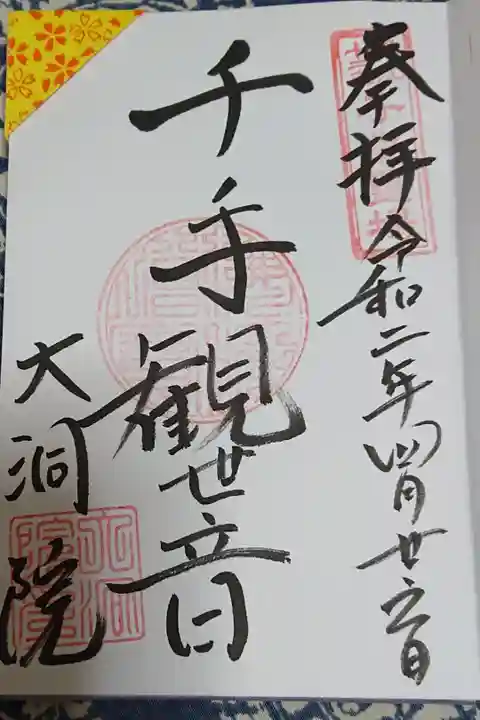 奉拝
令和二年四月廿六日
千手観世音
大洞院